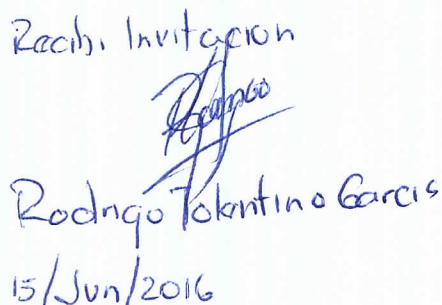 Recibi Invitacion
Rodrigo
Rodrigo Tolentino Garcis
15/Jun/2016